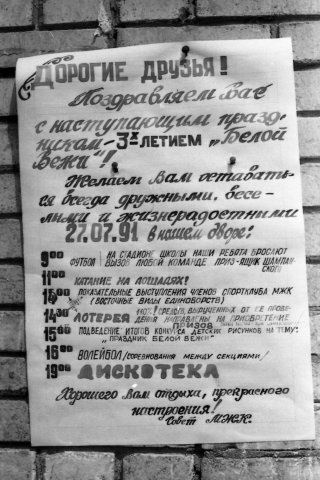 ДОРОГИЕ ДРУЗЬЯ!
Поздравляем Вас
с наступающим празд-
ником - 3х ЛЕТИЕМ „Белой
Вежи"!
Желаем Вам оставать-
ся всегда дружными, весе-
лыми и жизнерадостными
27.07.91 в нашем дворе:
9 00 НА СТАДИОНЕ ШКОЛЫ НАШИ РЕБЯТА БРОСАЮТ
ФУТБОЛ ВЫЗОВ ЛЮБОЙ КОМАНДЕ. ПРИЗ-ЯЩИК ШАМПАН-
СКОГО.
11 00 КАТАНИЕ НА ЛОШАДЯХ!
14 00 ПОКАЗАТЕЛЬНЫЕ ВЫСТУПЛЕНИЯ ЧЛЕНОВ СПОРТКЛУБА МЖК
(ВОСТОЧНЫЕ ВИДЫ ЕДИНОБОРСТВ)
14 30 ЛОТЕРЕЯ 110%! СРЕДСТВ, ВЫРУЧЕННЫХ ОТ ЕЕ ПРОВЕ-
ДЕНИЯ НАПРАВЛЕНЫ НА ПРИОБРЕТЕНИЕ
ПРИЗОВ
15 00 ПОДВЕДЕНИЕ ИТОГОВ КОНКУРСА ДЕТСКИХ РИСУНКОВ НА ТЕМУ:
„ПРАЗДНИК БЕЛОЙ ВЕЖИ"
16 00 ВОЛЕЙБОЛ /СОРЕВНОВАНИЯ МЕЖДУ СЕКЦИЯМИ/
19 00 ДИСКОТЕКА
Хорошего Вам отдыха, прекрасного
настроения!
Совет МЖК.